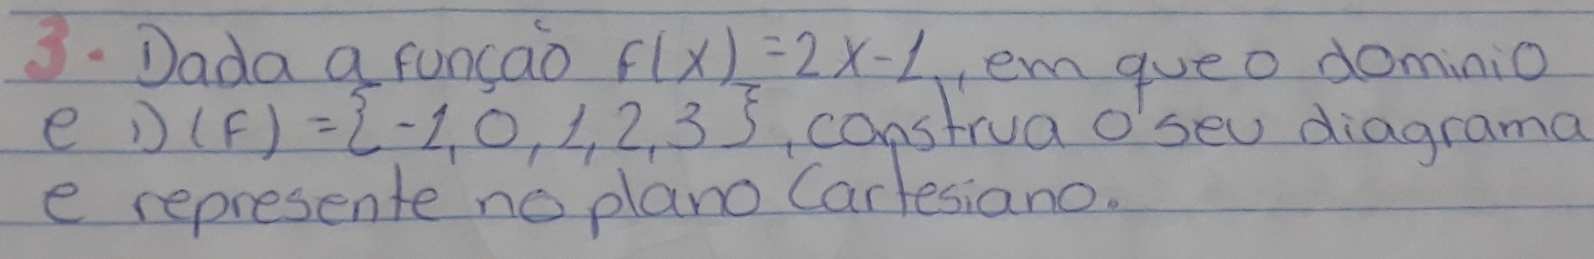 3. Dada a função f(x) = 2x-1, em que o dominio
e D(F) = {-1, 0, 1, 2, 3}, construa o seu diagrama
e represente no plano Cartesiano.